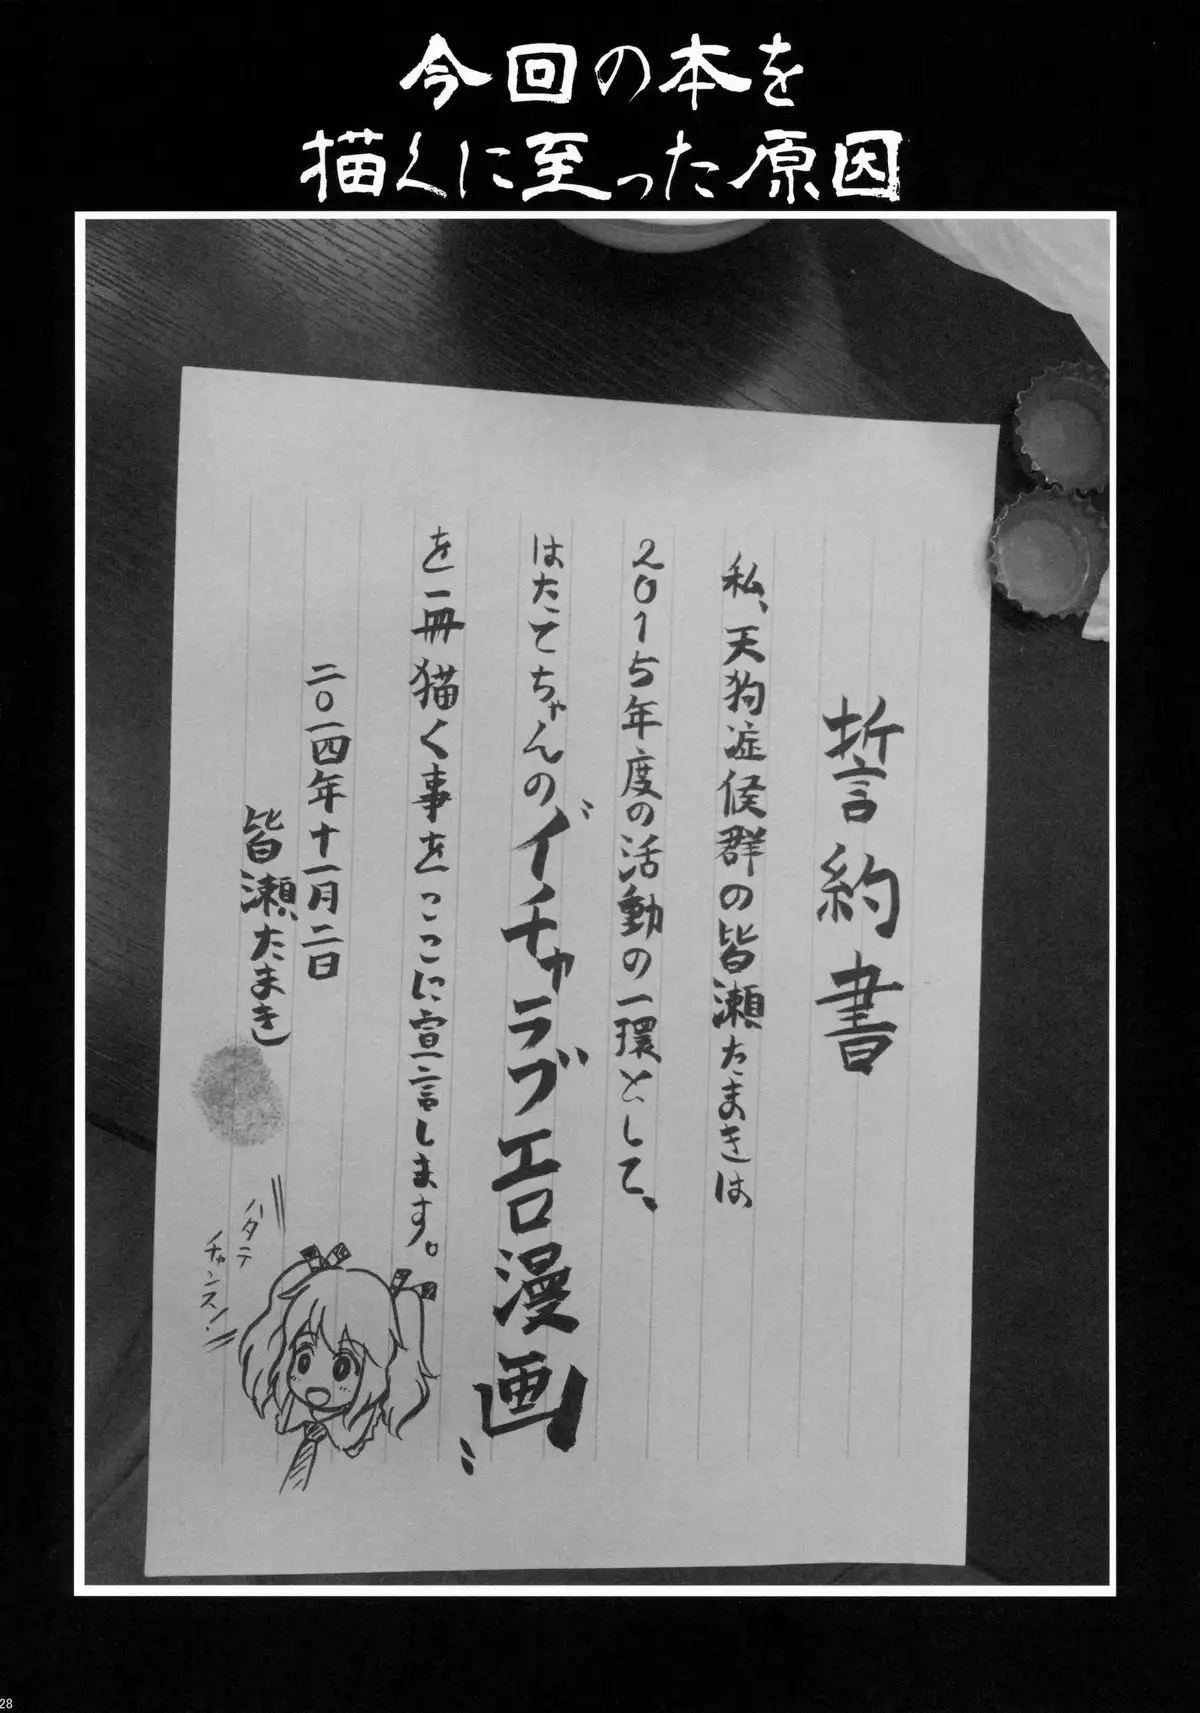 今回の本を
描くに至った原因
誓約書
私、天狗症候群の皆瀬たまきは
2015年度の活動の一環として、
はたてちゃんの〝イチャラブエロ漫画〟
を一冊猫く事をここに宣言します。
二〇一四年十一月二日
皆瀬たまき
ハタテ
チャンスッ!
28